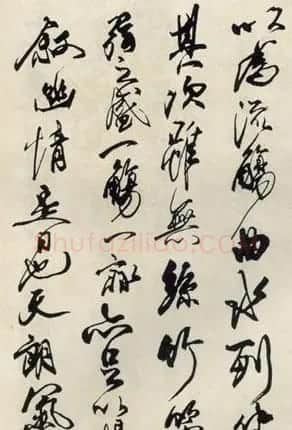 以為流觴曲水列坐
其次雖無絲竹管
弦之盛一觴一詠亦足以暢
敘幽情是日也天朗氣